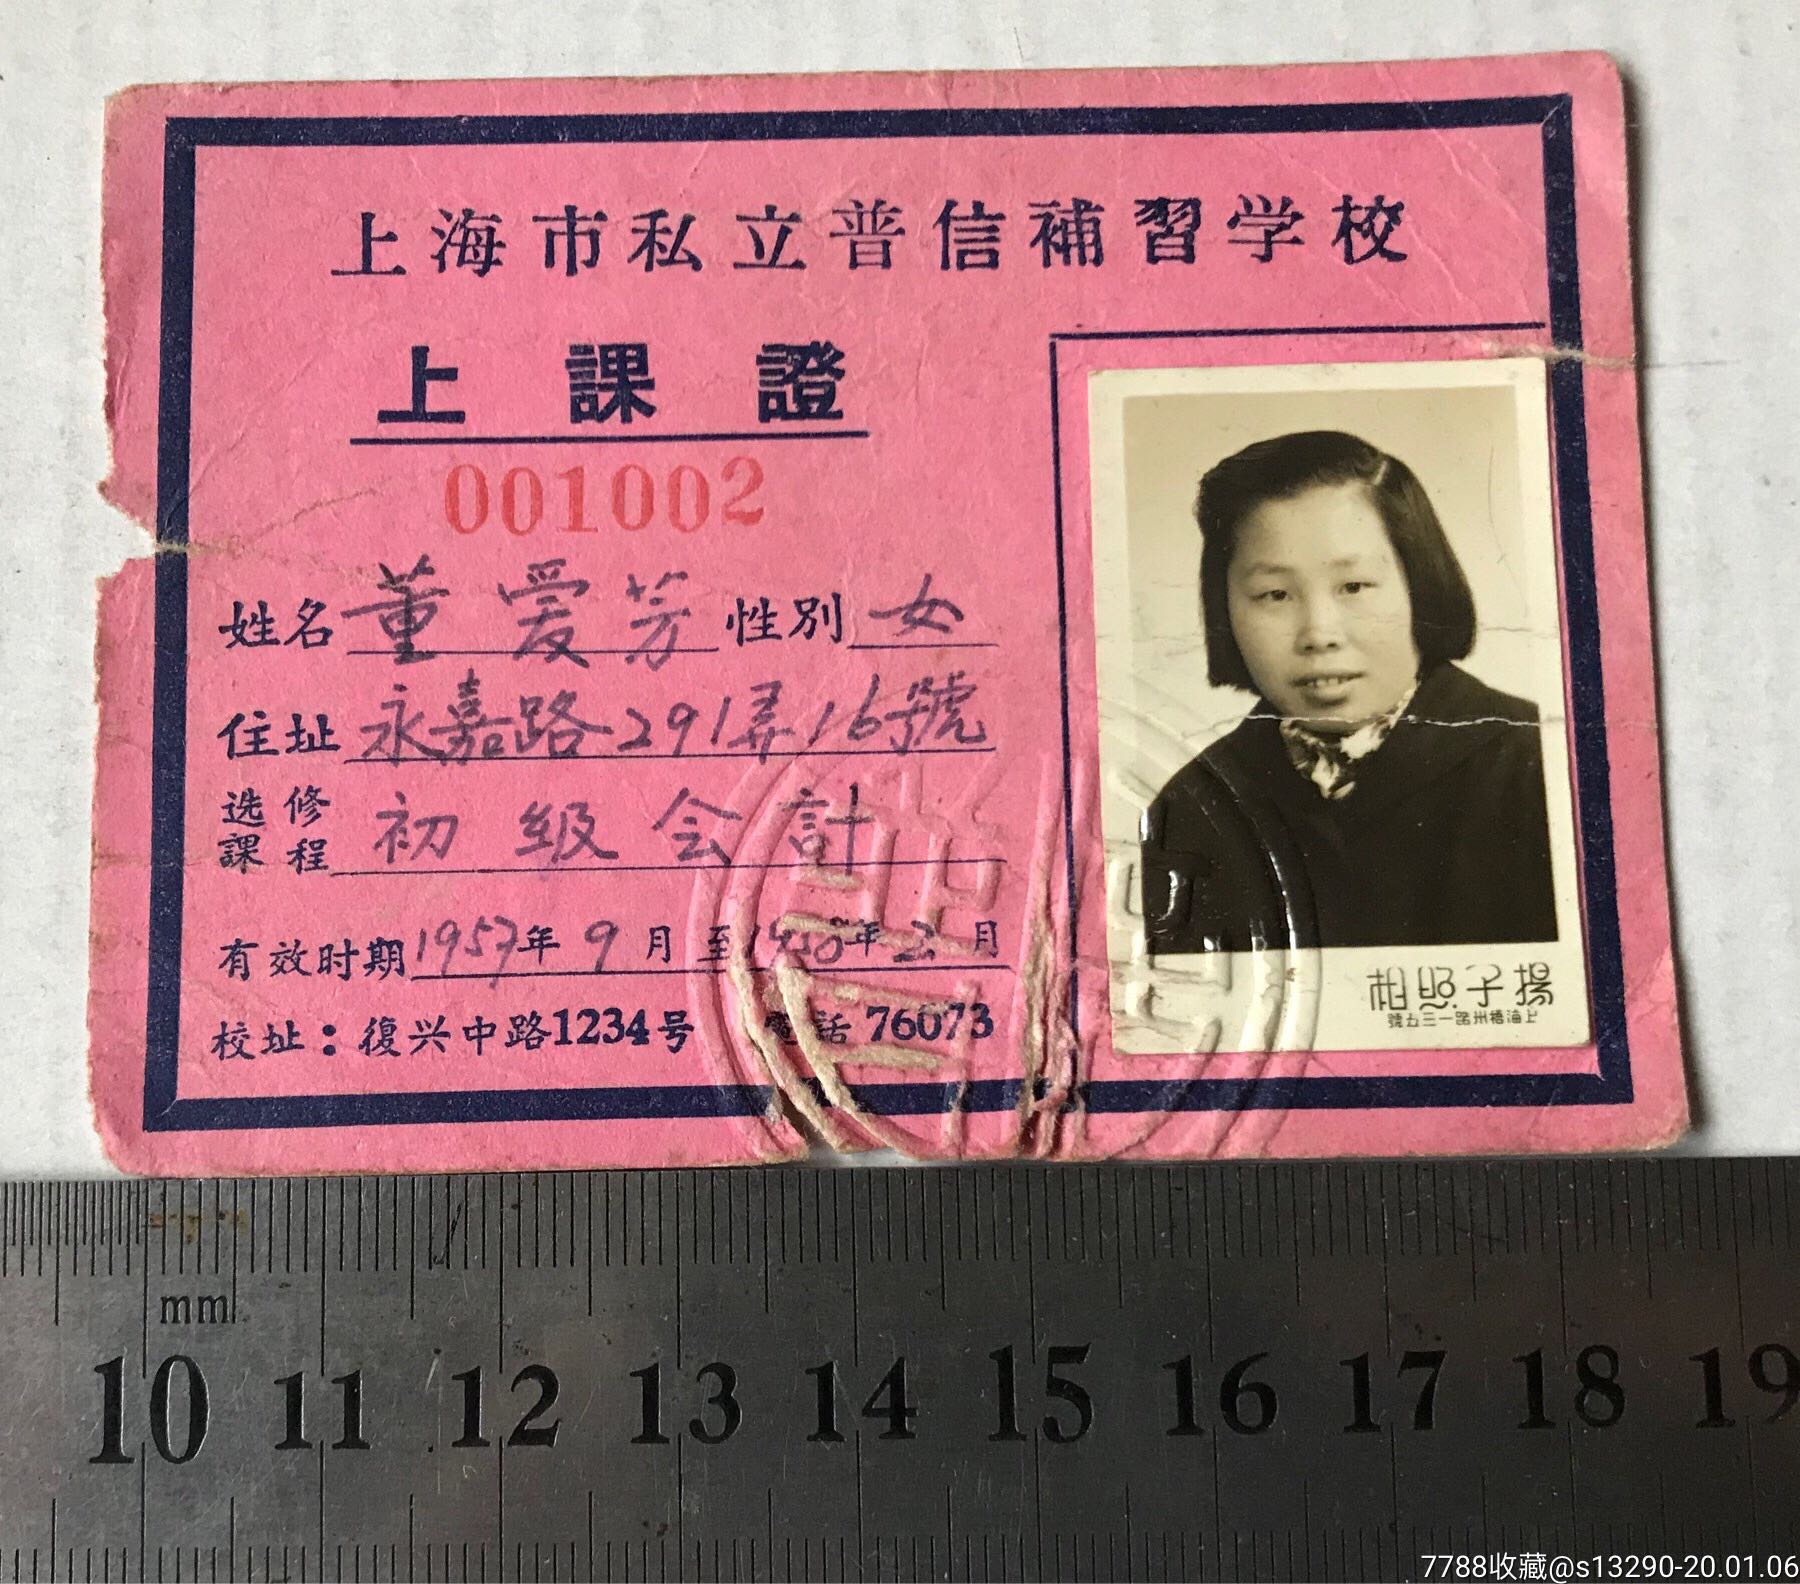 上海市私立普信補習学校
上課證
001002
姓名 董爱芳 性別 女
住址 永嘉路291弄16號
选修課程 初級会計
有效时期 1957年9月至1958年2月
校址：復兴中路1234号 電話 76073
相照子揚
號五三一路州梧海上
mm
10 11 12 13 14 15 16 17 18 19
7788收藏@s13290-20.01.06